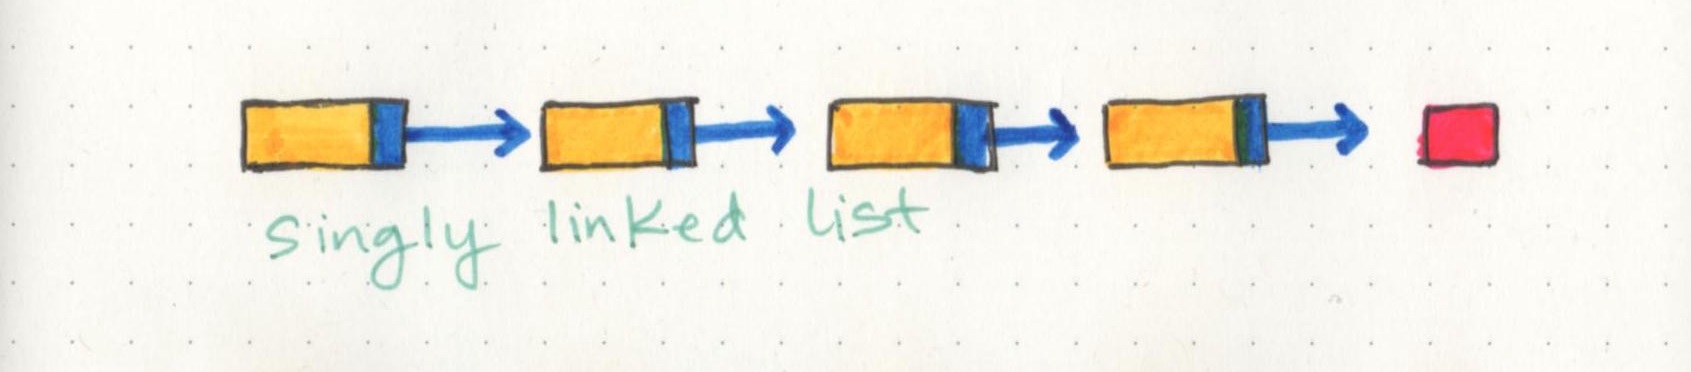 singly linked list